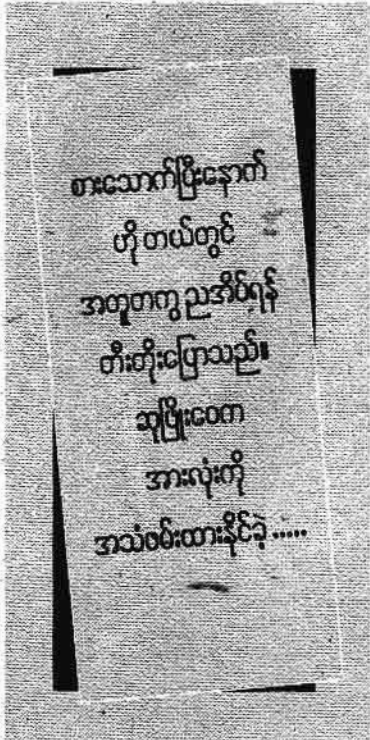 စားသောက်ပြီးနောက်
ဟို တယ်တွင်
အတူတကွ ညအိပ်ရန်
တီးတိုးပြောသည်။
ဆုဖြိုးဝေက
အားလုံးကို
အသံဖမ်းထားနိုင်ခဲ့ .....